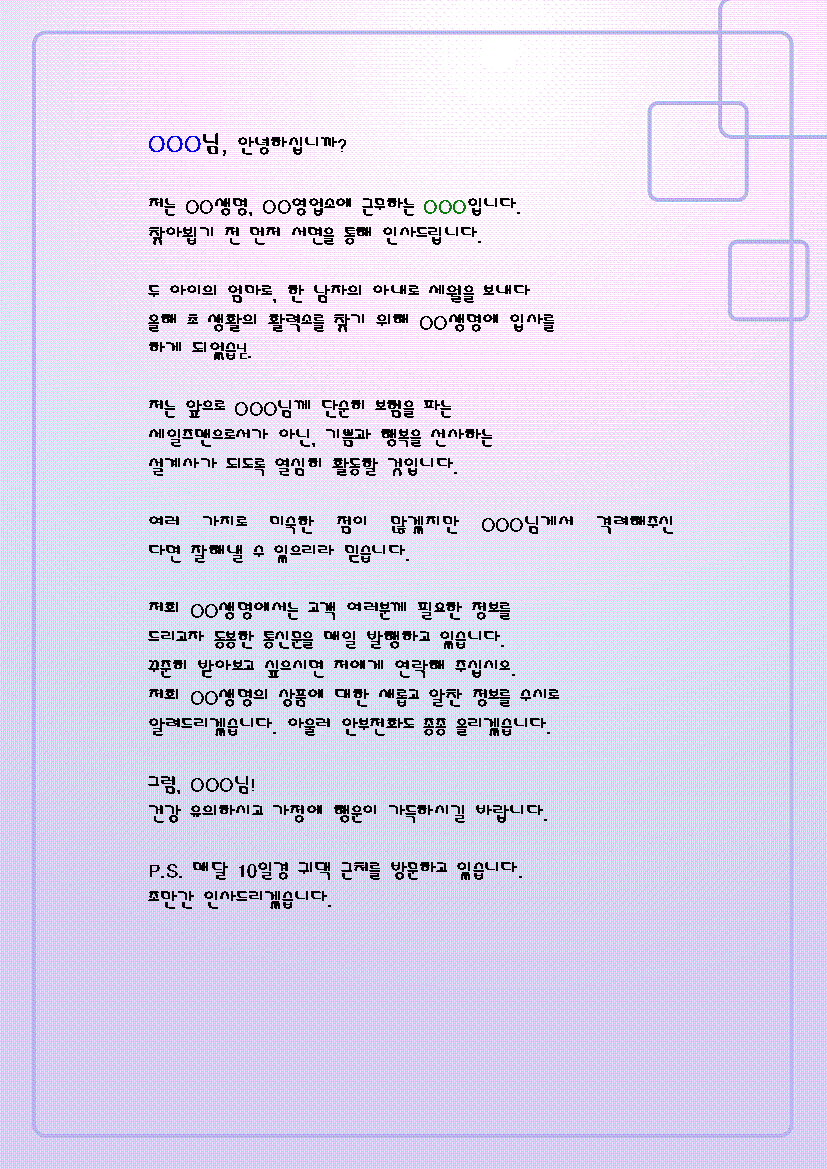 OOO님, 안녕하십니까?
저는 OO생명, OO영업소에 근무하는 OOO입니다.
찾아뵙기 전 먼저 서면을 통해 인사드립니다.
두 아이의 엄마로, 한 남자의 아내로 세월을 보내다
올해 초 생활의 활력소를 찾기 위해 OO생명에 입사를
하게 되었습니다.
저는 앞으로 OOO님께 단순히 보험을 파는
세일즈맨으로서가 아닌, 기쁨과 행복을 선사하는
설계사가 되도록 열심히 활동할 것입니다.
여러 가지로 미숙한 점이 많겠지만 OOO님께서 격려해주신
다면 잘해낼 수 있으리라 믿습니다.
저희 OO생명에서는 고객 여러분께 필요한 정보를
드리고자 동봉한 통신문을 매일 발행하고 있습니다.
꾸준히 받아보고 싶으시면 저에게 연락해 주십시오.
저희 OO생명의 상품에 대한 새롭고 알찬 정보를 수시로
알려드리겠습니다. 아울러 안부전화도 종종 올리겠습니다.
그럼, OOO님!
건강 유의하시고 가정에 행운이 가득하시길 바랍니다.
P.S. 매달 10일경 귀댁 근처를 방문하고 있습니다.
조만간 인사드리겠습니다.